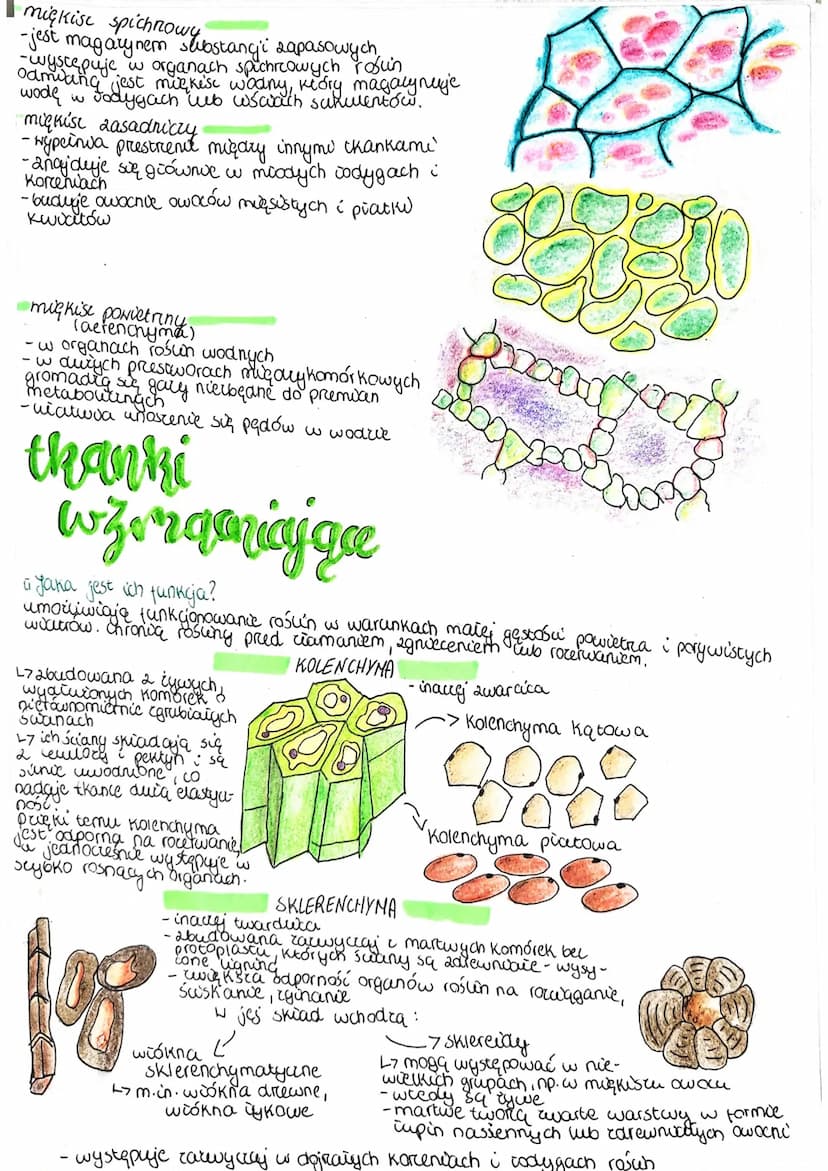 miękisz spichrzowy
- jest magazynem substancji zapasowych
- występuje w organach spichrzowych roślin
odmianą jest miękisz wodny, który magazynuje
wodę w łodygach lub liściach sukulentów.
miękisz zasadniczy
- wypełnia przestrzenie między innymi tkankami
- znajduje się głównie w młodych łodygach i
korzeniach
- buduje owocnie owoców mięsistych i płatki
kwiatów
miękisz powietrzny
(aerenchyma)
- w organach roślin wodnych
- w dużych przestworach międzykomórkowych
gromadzą się gazy niezbędne do przemian
metabolicznych
- ułatwia unoszenie się pędów w wodzie
tkanki
wzmacniające
Jaka jest ich funkcja?
umożliwiają funkcjonowanie roślin w warunkach małej gęstości powietrza i porywistych
wiatrów. chronią rośliny przed złamaniem, zgnieceniem lub rozerwaniem.
KOLENCHYMA
- inaczej zwarcica
↳ zbudowana z żywych,
wydłużonych komórek o
nierównomiernie zgrubiałych
ścianach
↳ ich ściany składają się
z celulozy i pektyn i są
silnie uwodnione, co
nadaje tkance dużą elastycz-
ność.
Dzięki temu kolenchyma
jest odporna na rozerwanie,
a jednocześnie występuje w
szybko rosnących organach.
→ Kolenchyma kątowa
Kolenchyma płatowa
SKLERENCHYMA
- inaczej twardzica
- zbudowana zazwyczaj z martwych komórek bez
protoplastu, których ściany są zdrewniałe - wysy-
cone ligniną
- zwiększa odporność organów roślin na rozciąganie,
ściskanie, zginanie
W jej skład wchodzą:
włókna
sklerenchymatyczne
↳ m.in. włókna drzewne,
włókna łykowe
→ sklereidy
↳ mogą występować w nie-
wielkich grupach, np. w miękiszu owocu
- wtedy są żywe
- martwe tworzą zwarte warstwy w formie
łupin nasiennych lub zdrewniałych owocni
- występuje zazwyczaj w dojrzałych korzeniach i łodygach roślin